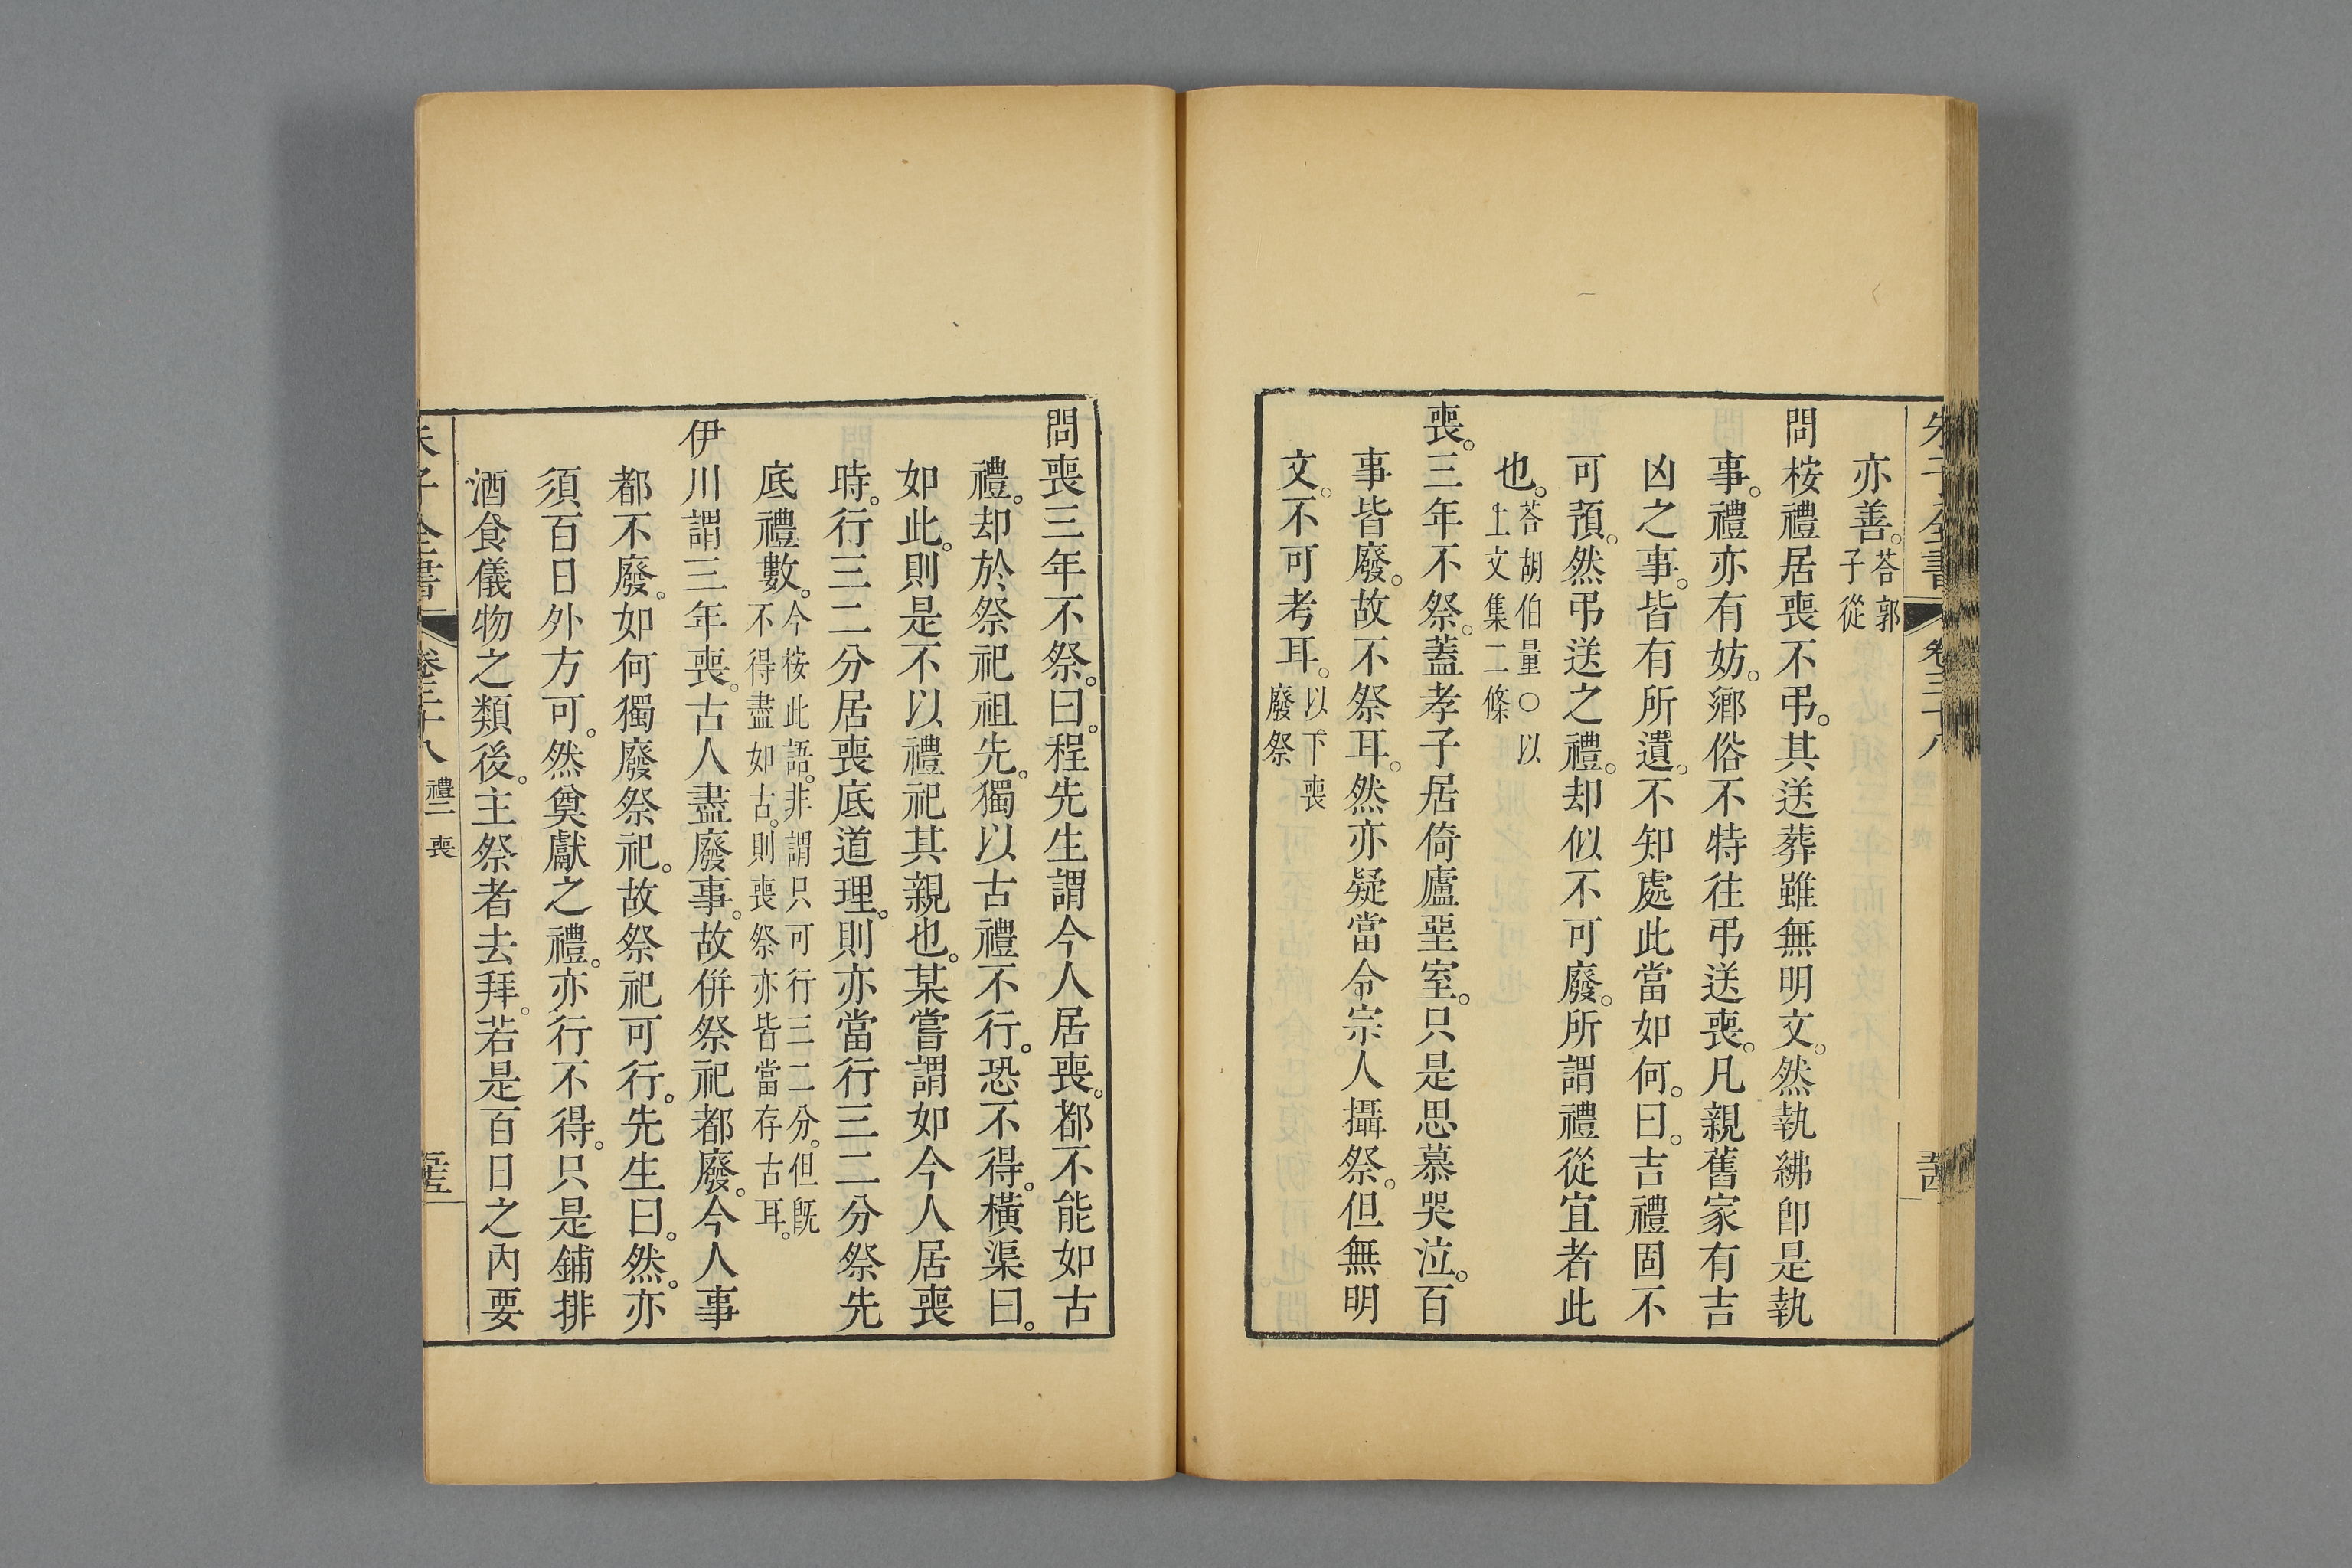 亦善。答郭子從
問桉禮居喪不弔。其送葬雖無明文。然執紼卽是執
事。禮亦有妨。鄕俗不特往弔送喪。凡親舊家有吉
凶之事。皆有所遺。不知處此當如何。曰。吉禮固不
可預。然弔送之禮。却似不可廢。所謂禮從宜者此
也。答胡伯量○以上文集二條
喪。三年不祭。蓋孝子居倚廬堊室。只是思慕哭泣。百
事皆廢。故不祭耳。然亦疑當令宗人攝祭。但無明
文。不可考耳。以下喪廢祭
問喪三年不祭。曰。程先生謂今人居喪。都不能如古
禮。却於祭祀祖先。獨以古禮不行。恐不得。橫渠曰。
如此。則是不以禮祀其親也。某嘗謂如今人居喪
時。行三二分居喪底道理。則亦當行三二分祭先
底禮數。今桉此語。非謂只可行三二分。但旣不得盡如古。則喪祭亦皆當存古耳。
伊川謂三年喪。古人盡廢事。故併祭祀都廢。今人事
都不廢。如何獨廢祭祀。故祭祀可行。先生曰。然。亦
須百日外方可。然奠獻之禮。亦行不得。只是鋪排
酒食儀物之類後。主祭者去拜。若是百日之內要
朱子全書 卷三十八 禮二 喪